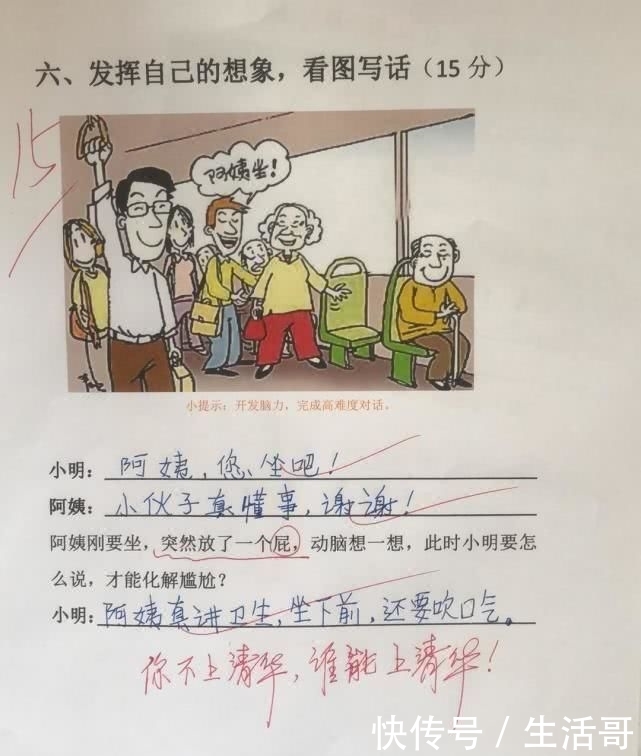 六、发挥自己的想象，看图写话（15 分）
15
阿姨坐！
小提示：开发脑力，完成高难度对话。
小明：阿姨，您坐吧！
阿姨：小伙子真懂事，谢谢！
阿姨刚要坐，突然放了一个屁，动脑想一想，此时小明要怎
么说，才能化解尴尬？
小明：阿姨真讲卫生，坐下前，还要吹口气。
你不上清华，谁能上清华！
快传号 / 生活哥